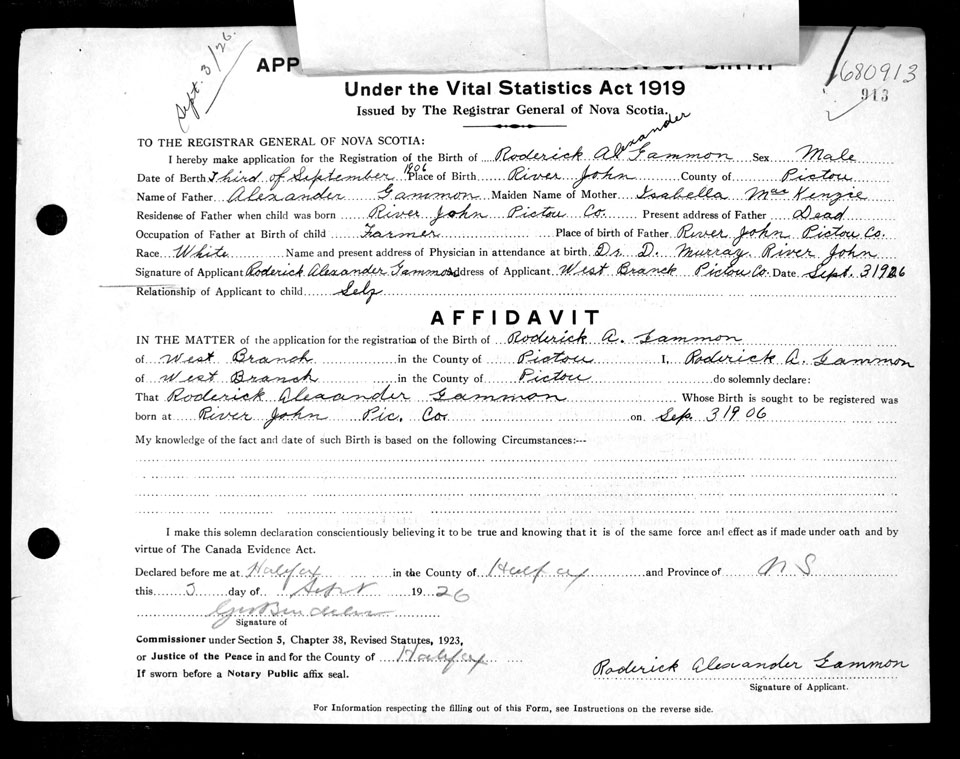 Sept. 3/26.
680913
913
APP
Under the Vital Statistics Act 1919
Issued by The Registrar General of Nova Scotia.
TO THE REGISTRAR GENERAL OF NOVA SCOTIA:
I hereby make application for the Registration of the Birth of Roderick Alexander Gammon Sex Male
Date of Berth Third of September 1906 Place of Birth River John County of Pictou
Name of Father Alexander Gammon Maiden Name of Mother Isabella MacKenzie
Residense of Father when child was born River John Pictou Co. Present address of Father Dead
Occupation of Father at Birth of child Farmer Place of birth of Father River John Pictou Co.
Race White Name and present address of Physician in attendance at birth Dr. D. Murray River John
Signature of Applicant Roderick Alexander Gammon Address of Applicant West Branch Pictou Co. Date Sept. 3 1926
Relationship of Applicant to child Self
AFFIDAVIT
IN THE MATTER of the application for the registration of the Birth of Roderick A. Gammon
of West Branch in the County of Pictou I, Roderick A. Gammon
of West Branch in the County of Pictou do solemnly declare:
That Roderick Alexander Gammon Whose Birth is sought to be registered was
born at River John Pic. Co. on Sep. 3 1906
My knowledge of the fact and date of such Birth is based on the following Circumstances:--
I make this solemn declaration conscientiously believing it to be true and knowing that it is of the same force and effect as if made under oath and by
virtue of The Canada Evidence Act.
Declared before me at Halifax in the County of Halifax and Province of N S
this 3 day of Sept 1926
Signature of,
Commissioner under Section 5, Chapter 38, Revised Statutes, 1923,
or Justice of the Peace in and for the County of Halifax
If sworn before a Notary Public affix seal.
Roderick Alexander Gammon
Signature of Applicant.
For Information respecting the filling out of this Form, see Instructions on the reverse side.